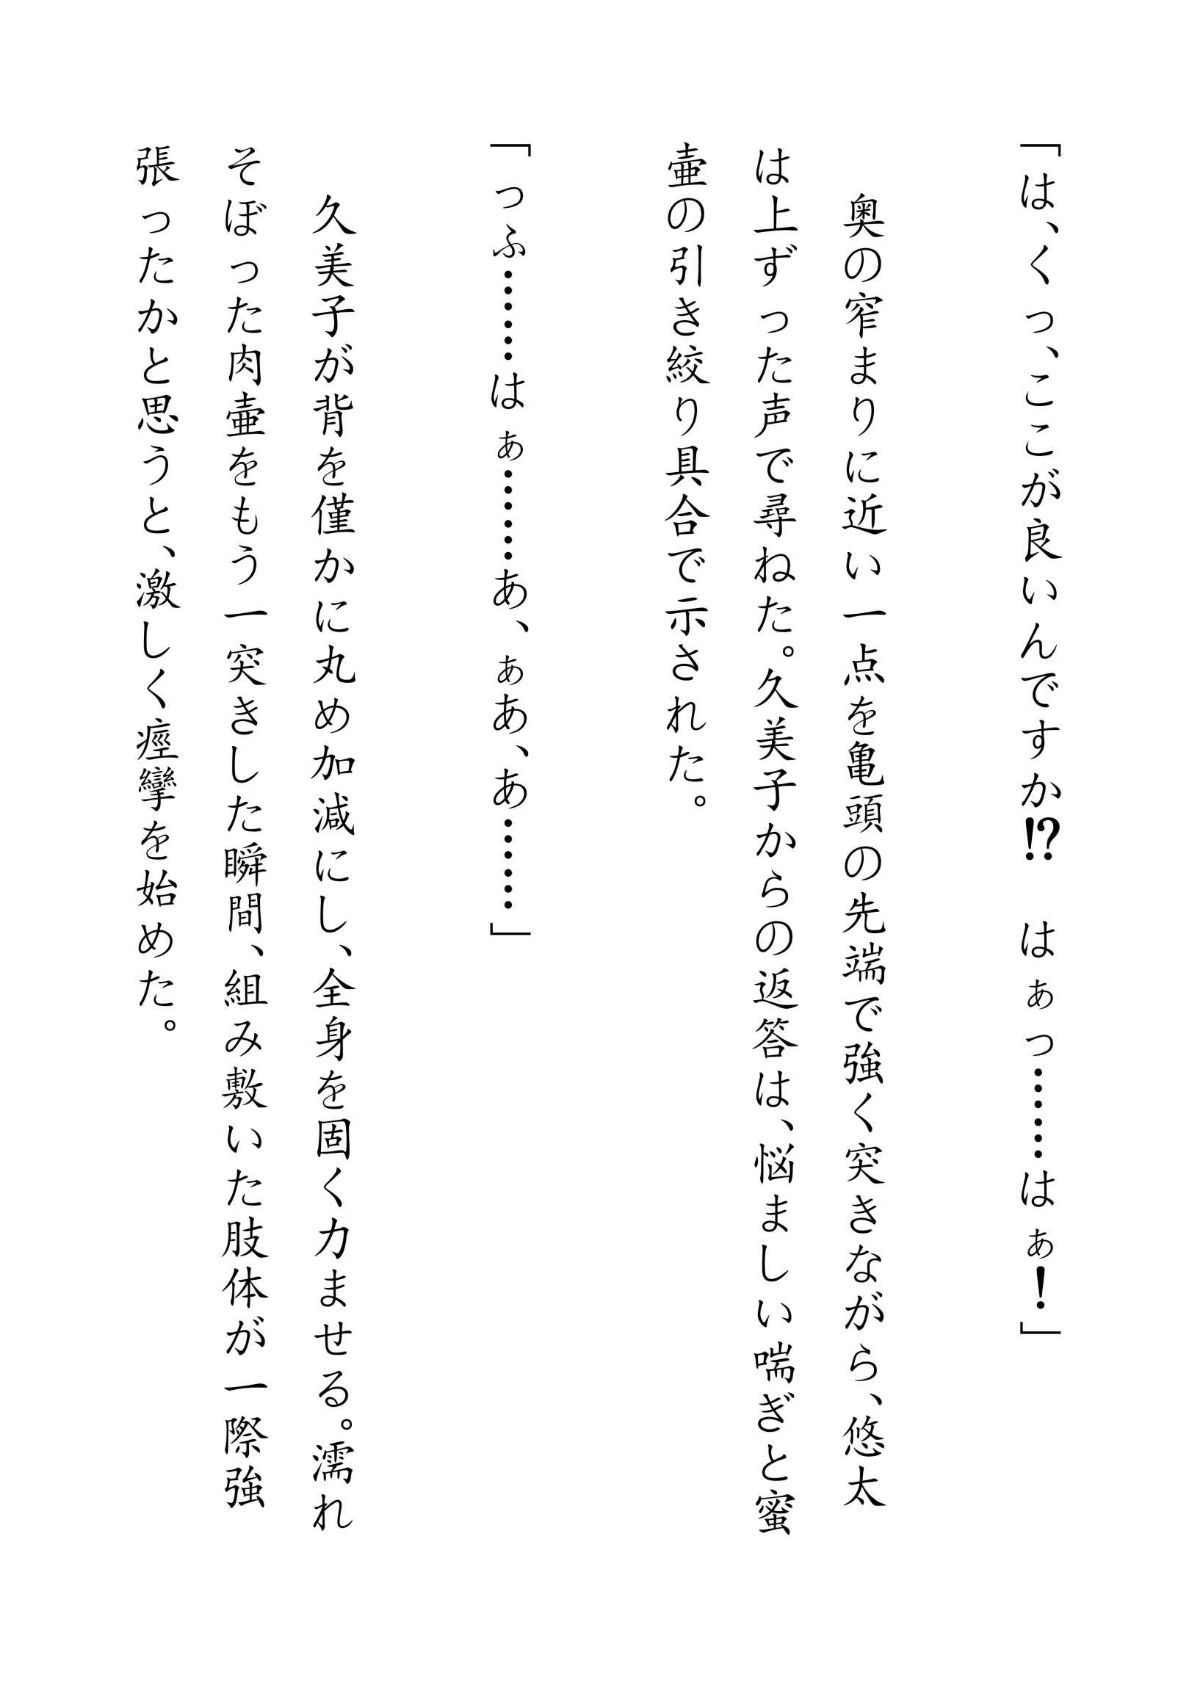 「は、くっ、ここが良いんですか⁉　はぁっ……はぁ！」
　奥の窄まりに近い一点を亀頭の先端で強く突きながら、悠太
は上ずった声で尋ねた。久美子からの返答は、悩ましい喘ぎと蜜
壷の引き絞り具合で示された。
「っふ……はぁ……あ、ぁあ、あ……」
　久美子が背を僅かに丸め加減にし、全身を固く力ませる。濡れ
そぼった肉壷をもう一突きした瞬間、組み敷いた肢体が一際強
張ったかと思うと、激しく痙攣を始めた。